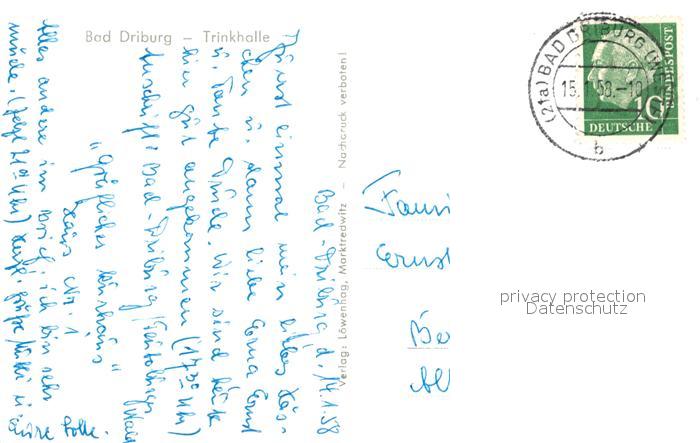 Bad Driburg – Trinkhalle
Bad-Driburg, d. 14.1.58
Zuerst einmal mein liebes Häs-
chen u. dann liebe Erna Ernst
u. Tante Trude. Wir sind heute
hier gut angekommen (17³⁰ Uhr)
Anschrift: Bad-Driburg/Teutoburger Wald
"Gräfliches Kurhaus"
Haus Nr. 1
Alles andere im Brief, ich bin sehr
müde. (jetzt 21⁰⁰ Uhr) Herzl. Grüße
Verlag: Löwenhag, Marktredwitz – Nachdruck verboten!
Fami
Ernst
Be
(21a) BAD DRIBURG
15.1.58.–10
b
10
DEUTSCHE
BUNDESPOST
privacy protection
Datenschutz